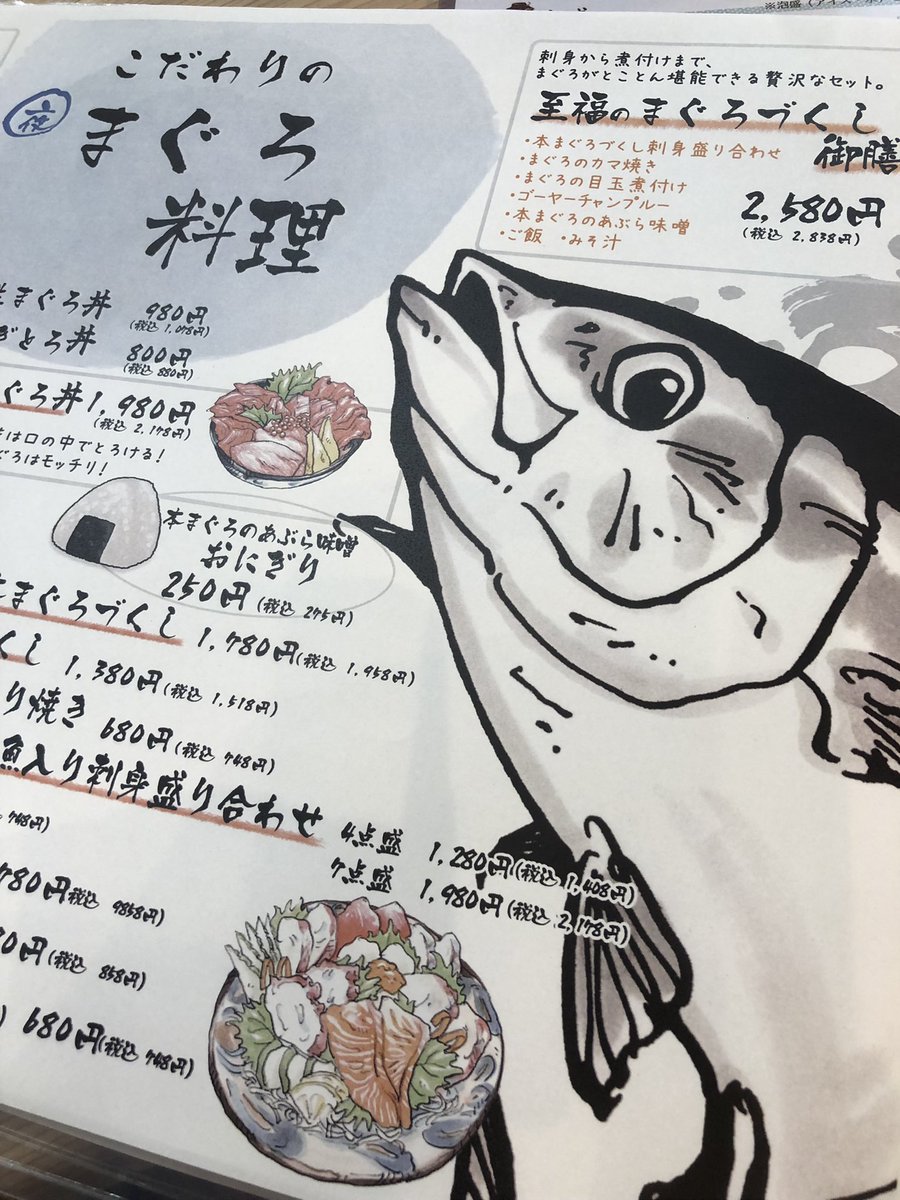 こだわりの
まぐろ
料理
刺身から煮付けまで、
まぐろがとことん堪能できる贅沢なセット。
至福のまぐろづくし
御膳
・本まぐろづくし刺身盛り合わせ
・まぐろのカマ焼き
・まぐろの目玉煮付け
・ゴーヤーチャンプルー
・本まぐろのあぶら味噌
・ご飯 ・みそ汁
2,580円
(税込 2,838円)
まぐろ丼 980円
(税込 1,078円)
ぎとろ丼 800円
(税込 880円)
ぐろ丼 1,980円
(税込 2,178円)
は口の中でとろける!
ぐろはモッチリ!
本まぐろのあぶら味噌
おにぎり
250円 (税込 275円)
まぐろづくし 1,780円(税込 1,958円)
くし 1,380円(税込 1,518円)
り焼き 680円(税込 748円)
魚入り刺身盛り合わせ
4点盛 1,280円(税込 1,408円)
7点盛 1,980円(税込 2,178円)
748円)
780円(税込 9858円)
80円(税込 858円)
680円(税込 748円)